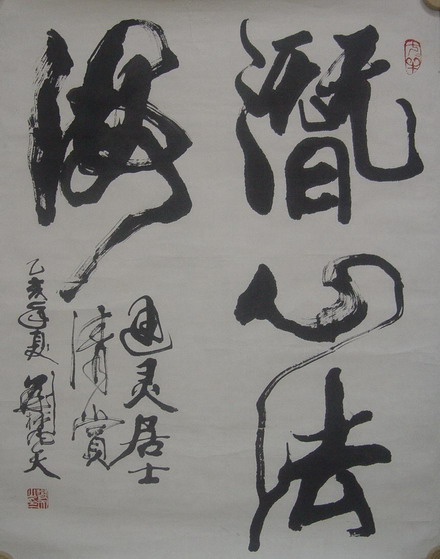 潛心法
海
通灵居士
清賞
乙亥年夏